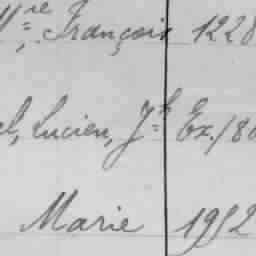 M.re François 1228
Lucien, J.h Ex. 180
Marie 1952